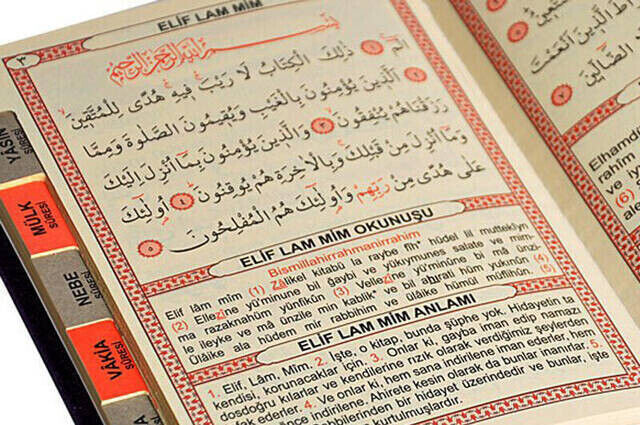 ELİF LAM MİM
٣
بسم الله الرحمن الرحيم
الٓمٓ ۝١ ذٰلِكَ الْكِتَابُ لَا رَيْبَ فِيهِ هُدًى لِلْمُتَّقِينَ
۝٢ اَلَّذِينَ يُؤْمِنُونَ بِالْغَيْبِ وَيُقِيمُونَ الصَّلٰوةَ وَمِمَّا
رَزَقْنَاهُمْ يُنْفِقُونَ ۝٣ وَالَّذِينَ يُؤْمِنُونَ بِمَا اُنْزِلَ اِلَيْكَ
وَمَا اُنْزِلَ مِنْ قَبْلِكَ وَبِالْاٰخِرَةِ هُمْ يُوقِنُونَ ۝٤ اُولٰٓئِكَ
عَلٰى هُدًى مِنْ رَبِّهِمْ وَاُولٰٓئِكَ هُمُ الْمُفْلِحُونَ ۝٥
ELİF LAM MİM OKUNUŞU
Bismillahirrahmanirrahim
Elif lâm mîm (1) Zâlikel kitâbü la raybe fîh* hüdel lil mutteklyn
(2) Ellezîne yü'minune bil ğaybi ve yükıymunes salate ve mim-
ma razaknahüm yünfikûn (3) Vellezîne yü'minûne bi mâ ünzi-
le ileyke ve mâ ünzile min kablik* ve bil ahırati hüm yûkınûn (4)
Ülâike ala hüdem mir rabbihim ve ülâike hümül müflihûn. (5)
ELİF LAM MİM ANLAMI
1. Elif, Lâm, Mîm. 2. İşte, o kitap, bunda şüphe yok. Hidayetin ta
kendisi, korunacaklar için. 3. Onlar ki, gayba iman edip namazı
dosdoğru kılarlar ve kendilerine rızık olarak verdiğimiz şeylerden
fak ederler. 4. Ve onlar ki, hem sana indirilene iman ederler, hem
önce indirilene. Ahirete kesin olarak da bunlar inanırlar. 5.
Rabblerinden bir hidayet üzerindedir ve bunlar, işte
kurtulmuşlardır.
YASİN
SÛRESİ
MÜLK
SÛRESİ
NEBE
SÛRESİ
VÂKIA
SÛRESİ
الَّذِينَ اَنْعَمْتَ
الضَّالِّينَ
Elhamd
rahîm
ve iy
(6)